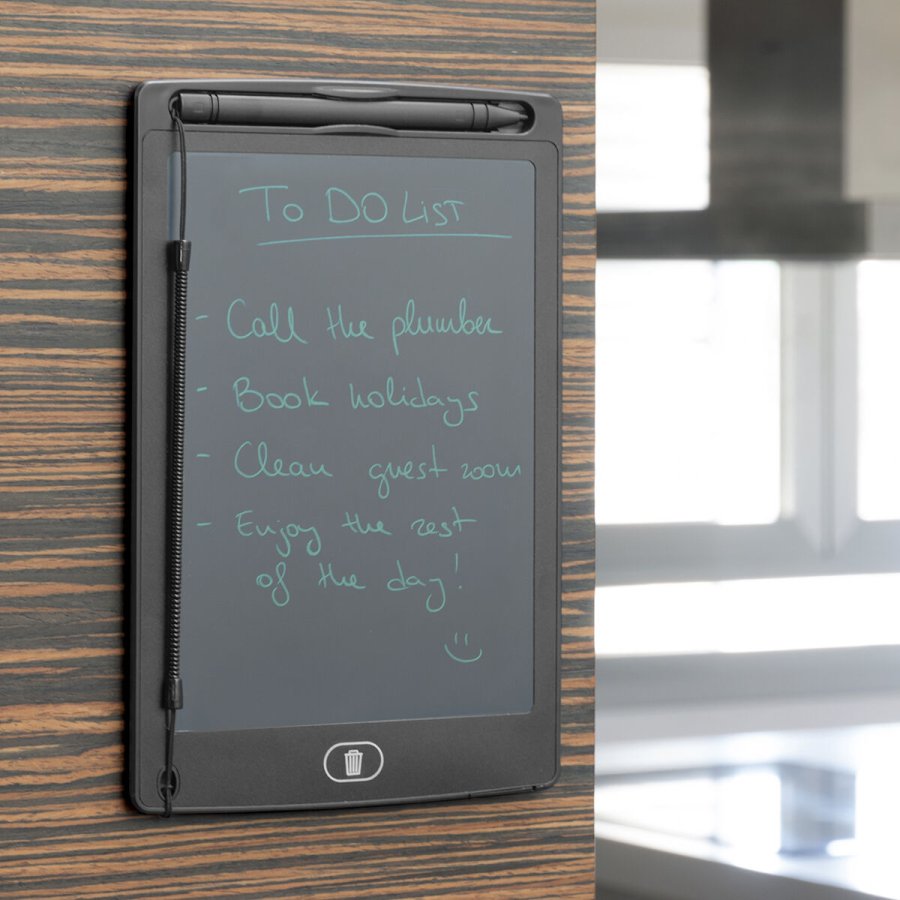 To DO LiST
- Call the plumber
- Book holidays
- Clean guest room
- Enjoy the rest
of the day!